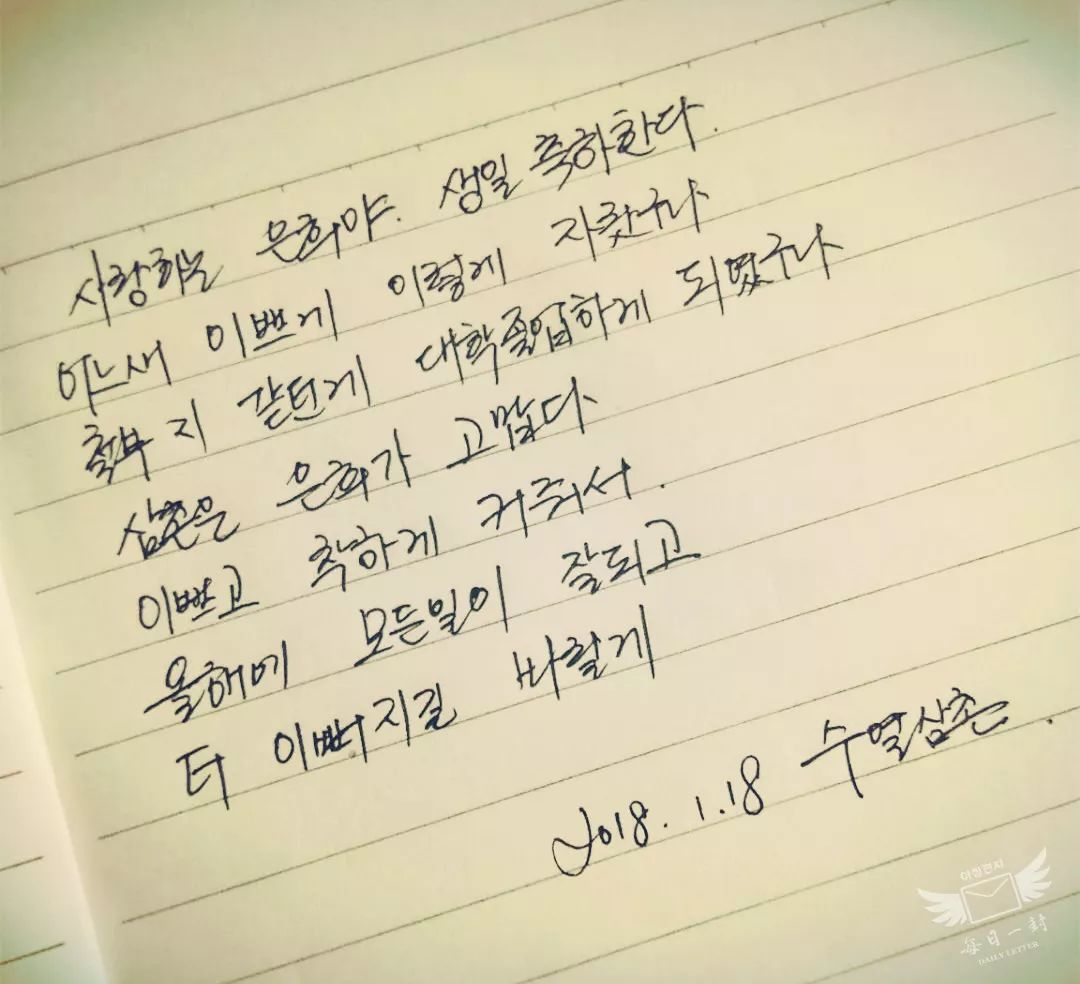 사랑하는 은희야. 생일 축하한다.
어느새 이쁘게 이렇게 자랐구나
철부지 같던게 대학졸업하게 되였구나
삼촌은 은희가 고맙다
이쁘고 착하게 커줘서.
올해에 모든일이 잘되고
더 이뻐지길 바랄게
2018. 1. 18 수열삼촌.
아침편지
每日一封
DAILY LETTER